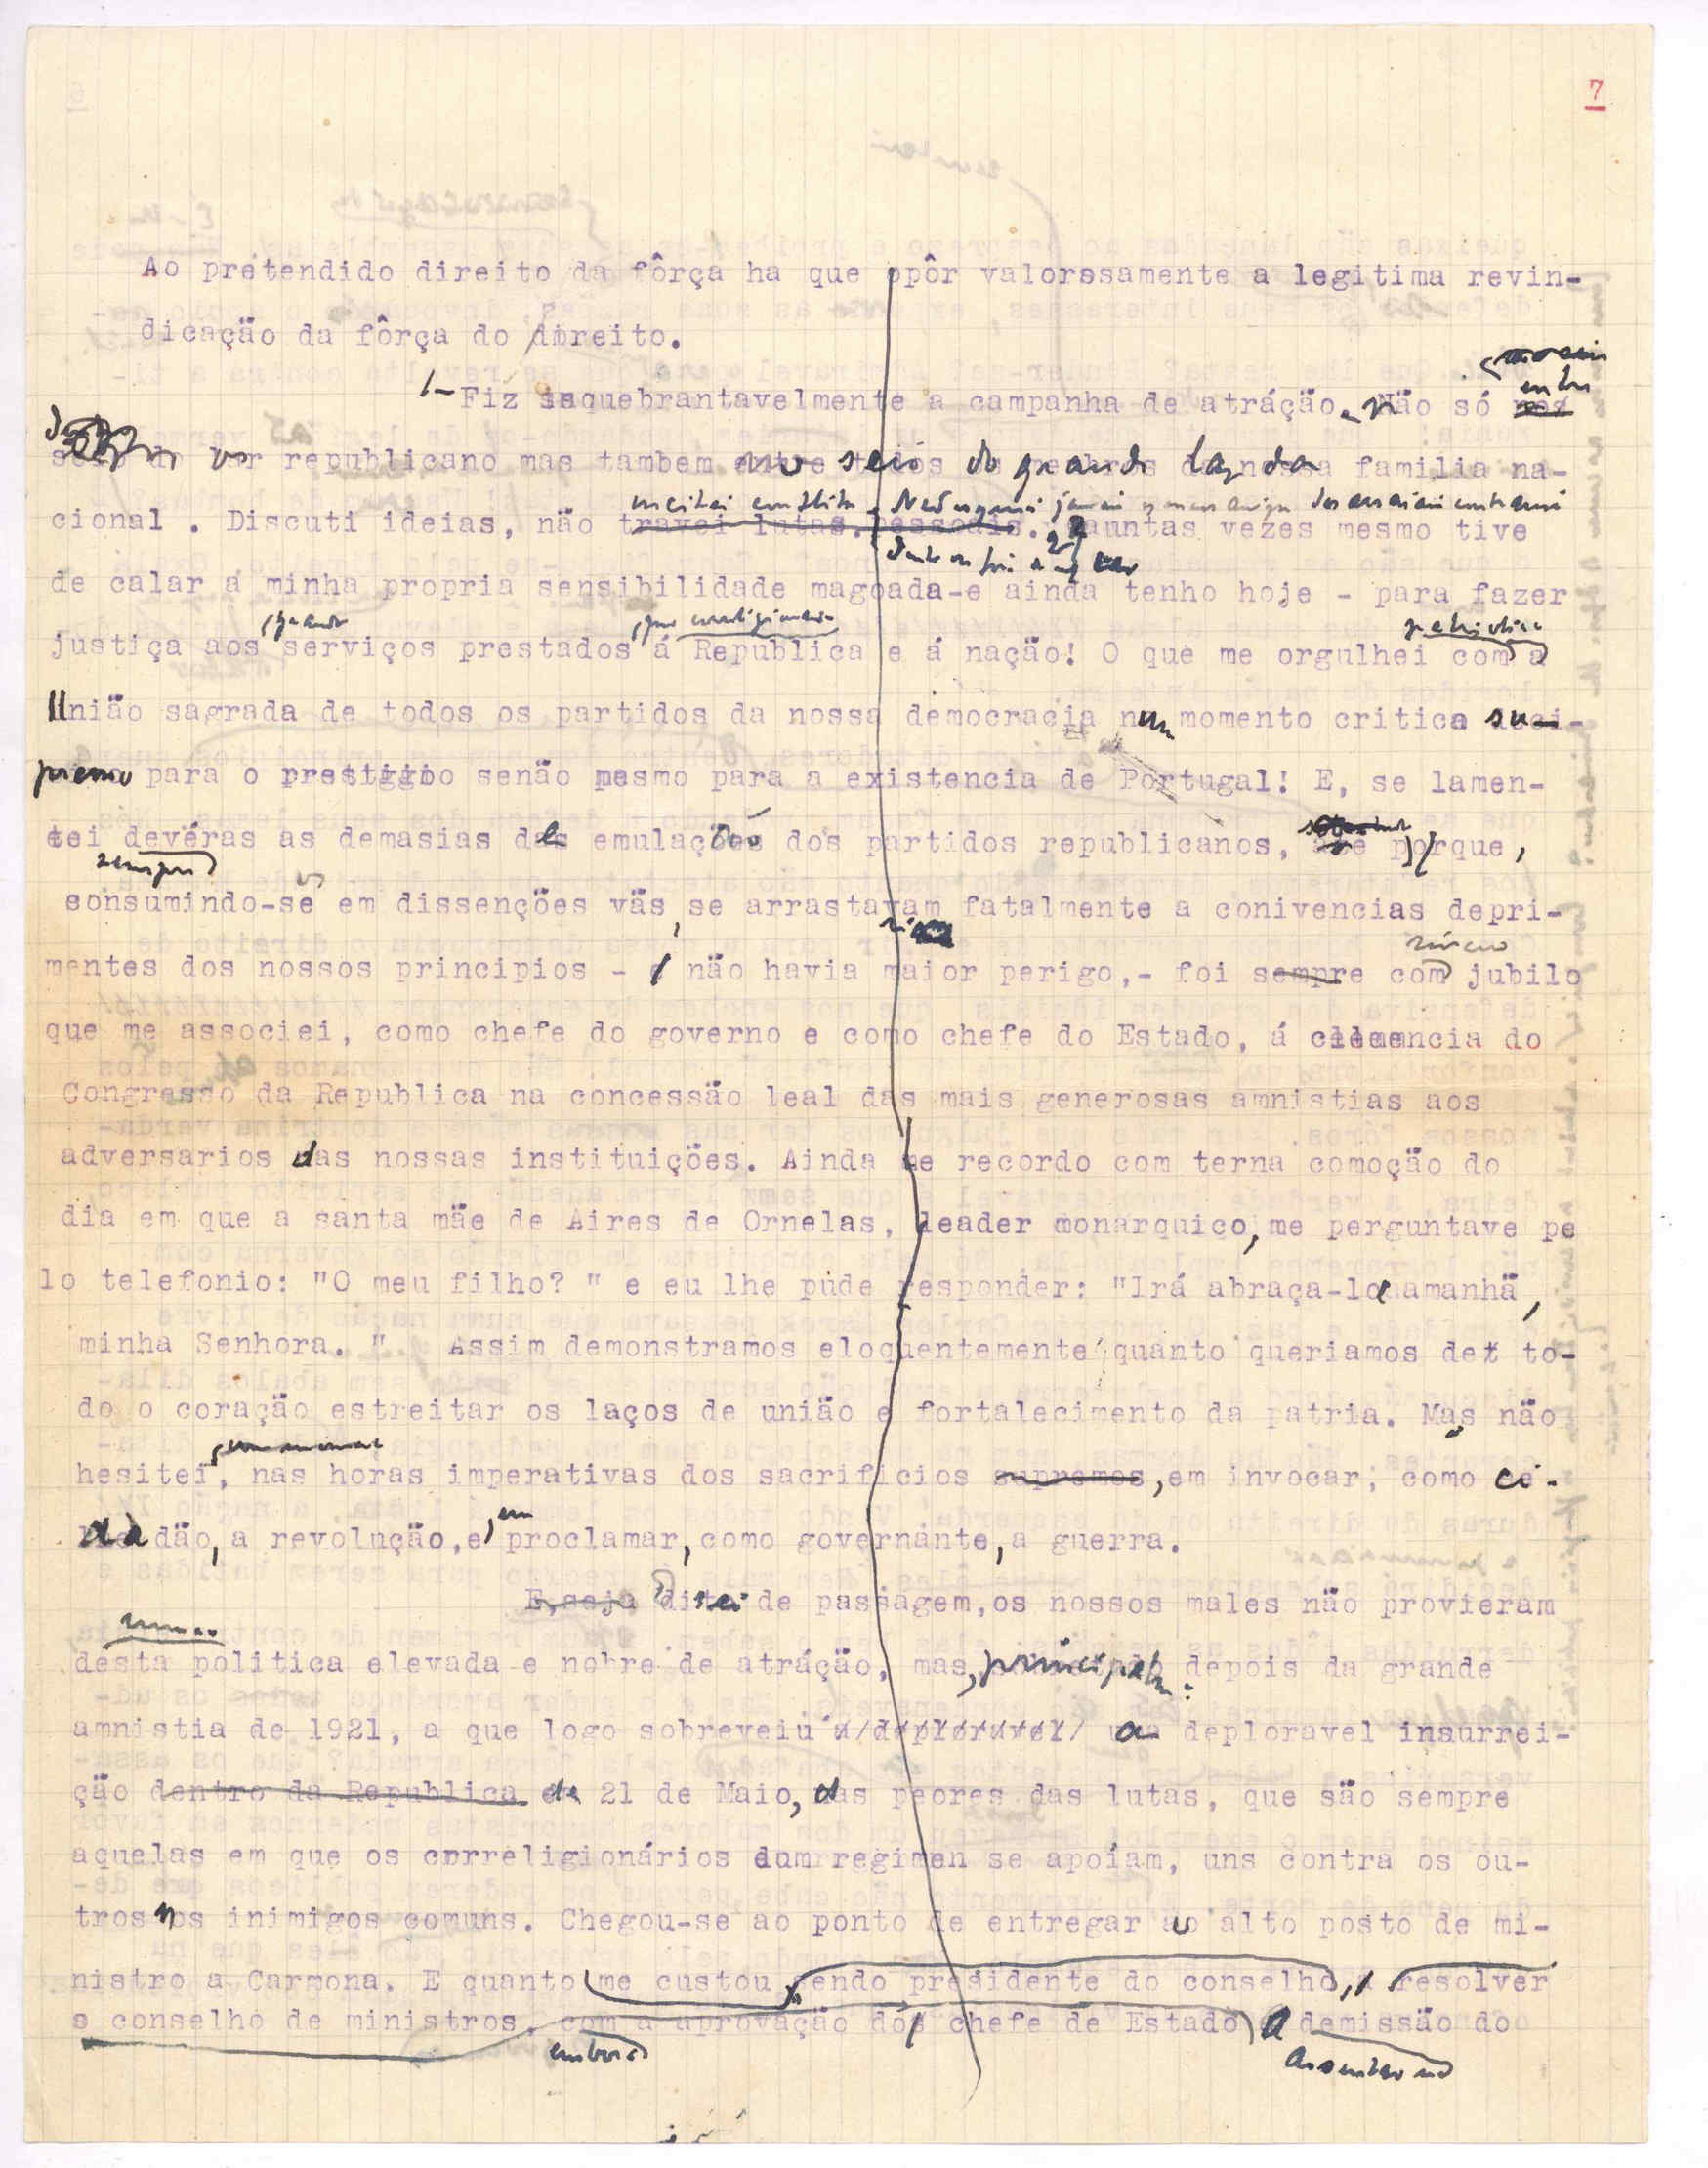 7
Ao pretendido direito da fôrça ha que opôr valorosamente a legitima revin-
dicação da fôrça do direito.
entre
Fiz inquebrantavelmente a campanha de atráção. Não só
republicano mas tambem no seio do grande lar da familia na-
incitei conflitos. Nada
cional . Discuti ideias, não travei lutas pessoais. Quantas vezes mesmo tive
de calar a minha propria sensibilidade magoada-e ainda tenho hoje - para fazer
patriotica
justiça aos serviços prestados á Republica e á nação! O que me orgulhei com a
União sagrada de todos os partidos da nossa democracia num momento critico su-
premo para o prestigio senão mesmo para a existencia de Portugal! E, se lamen-
tei devéras as demasias de emulações dos partidos republicanos, porque,
sempre
consumindo-se em dissenções vãs, se arrastavam fatalmente a conivencias depri-
sincero
mentes dos nossos principios - não havia maior perigo,- foi sempre com jubilo
que me associei, como chefe do governo e como chefe do Estado, á clemencia do
Congresso da Republica na concessão leal das mais generosas amnistias aos
adversarios das nossas instituições. Ainda me recordo com terna comoção do
dia em que a santa mãe de Aires de Ornelas, leader monarquico, me perguntave pe
lo telefonio: "O meu filho? " e eu lhe púde responder: "Irá abraça-lo amanhã,
minha Senhora. " Assim demonstramos eloquentemente quanto queriamos de to-
do o coração estreitar os laços de união e fortalecimento da patria. Mas não
hesitei, nas horas imperativas dos sacrificios supremos, em invocar, como ci-
em
dadão, a revolução, e, proclamar, como governante, a guerra.
E, seja direi de passagem, os nossos males não provieram
nunca
désta politica elevada e nobre de atráção, mas, depois da grande
amnistia de 1921, a que logo sobreveiu a/deploravel/ a deploravel insurrei-
ção dentro da Republica de 21 de Maio, das peores das lutas, que são sempre
aquelas em que os correligionários dum regimen se apoíam, uns contra os ou-
tros nos inimigos comuns. Chegou-se ao ponto de entregar o alto posto de mi-
nistro a Carmona. E quanto me custou sendo presidente do conselho, resolver
o conselho de ministros, com a aprovação do chefe de Estado, a demissão do
embora